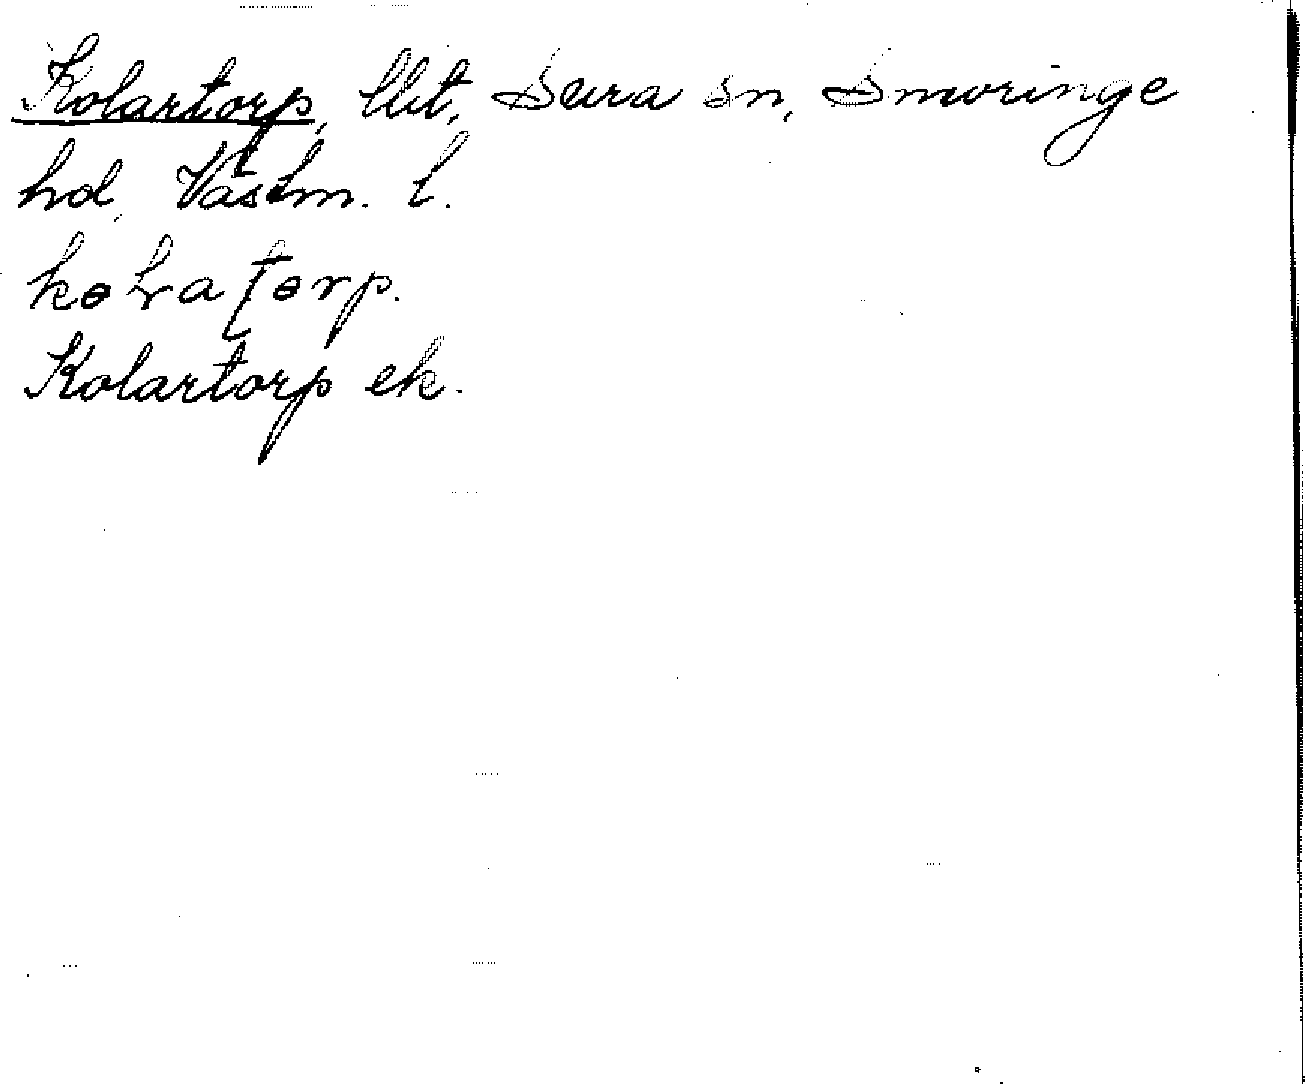 Kolartorp, llit, Sura sn, Snevringe
hd, Västm. l.
Kolartorp ek.